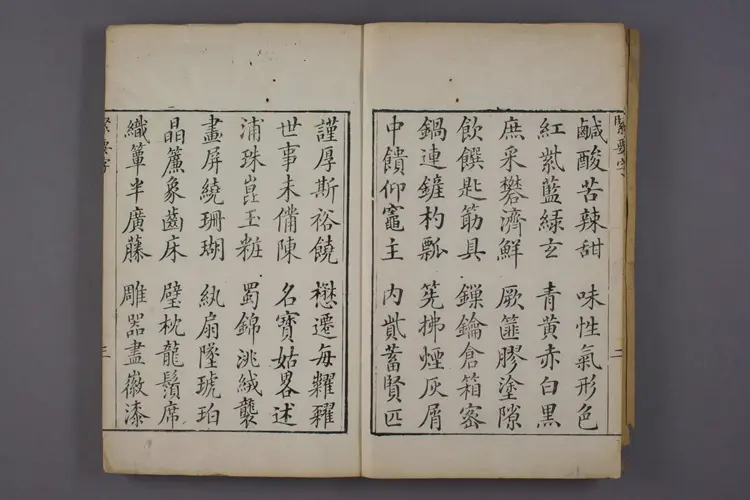 緊要字
二
鹹酸苦辣甜 味性氣形色
紅紫藍綠玄 青黃赤白黑
庶采礬濟鮮 厥篚膠塗隙
飲饌匙筯具 鏁鑰倉箱密
鍋連鏟杓瓢 筅拂煙灰屑
中饋仰竈主 內貳蓄賢匹
謹厚斯裕饒 懋遷每糶糴
世事未備陳 名寶姑畧述
浦珠崑玉粧 蜀錦洮絨襲
畫屏繞珊瑚 紈扇墜琥珀
晶簾象齒床 璧枕龍鬚席
織簟半廣藤 雕器盡徽漆
緊要字
三